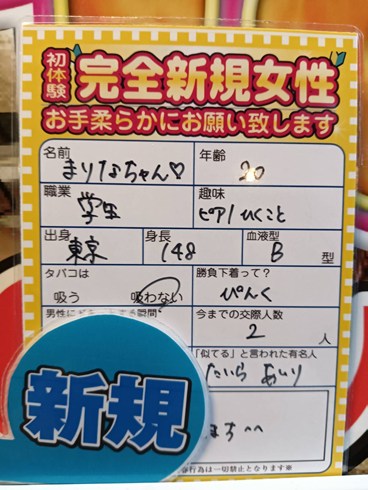 初体験 完全新規女性
お手柔らかにお願い致します
名前 まりなちゃん♡ 年齢 20
職業 学生 趣味 ピアノひくこと
出身 東京 身長 148 血液型 B 型
タバコは 吸う 吸わない 勝負下着って? ぴんく
男性に 瞬間 今までの交際人数 2 人
「似てる」と言われた有名人 たいら あいり
新規
ます^^
行為は一切禁止となります※